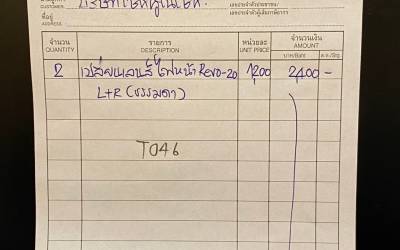 CUSTOMER
เลขประจำตัวผู้เสียภาษีอากร
ที่อยู่
ADDRESS
จำนวน รายการ หน่วยละ จำนวนเงิน
QUANTITY DESCRIPTION UNIT PRICE AMOUNT
บาท/Baht ส.ต./Stg.
2 เปลี่ยนเลนส์ไฟหน้า Revo-20 1200 2400 -
L+R (ธรรมดา)
T046